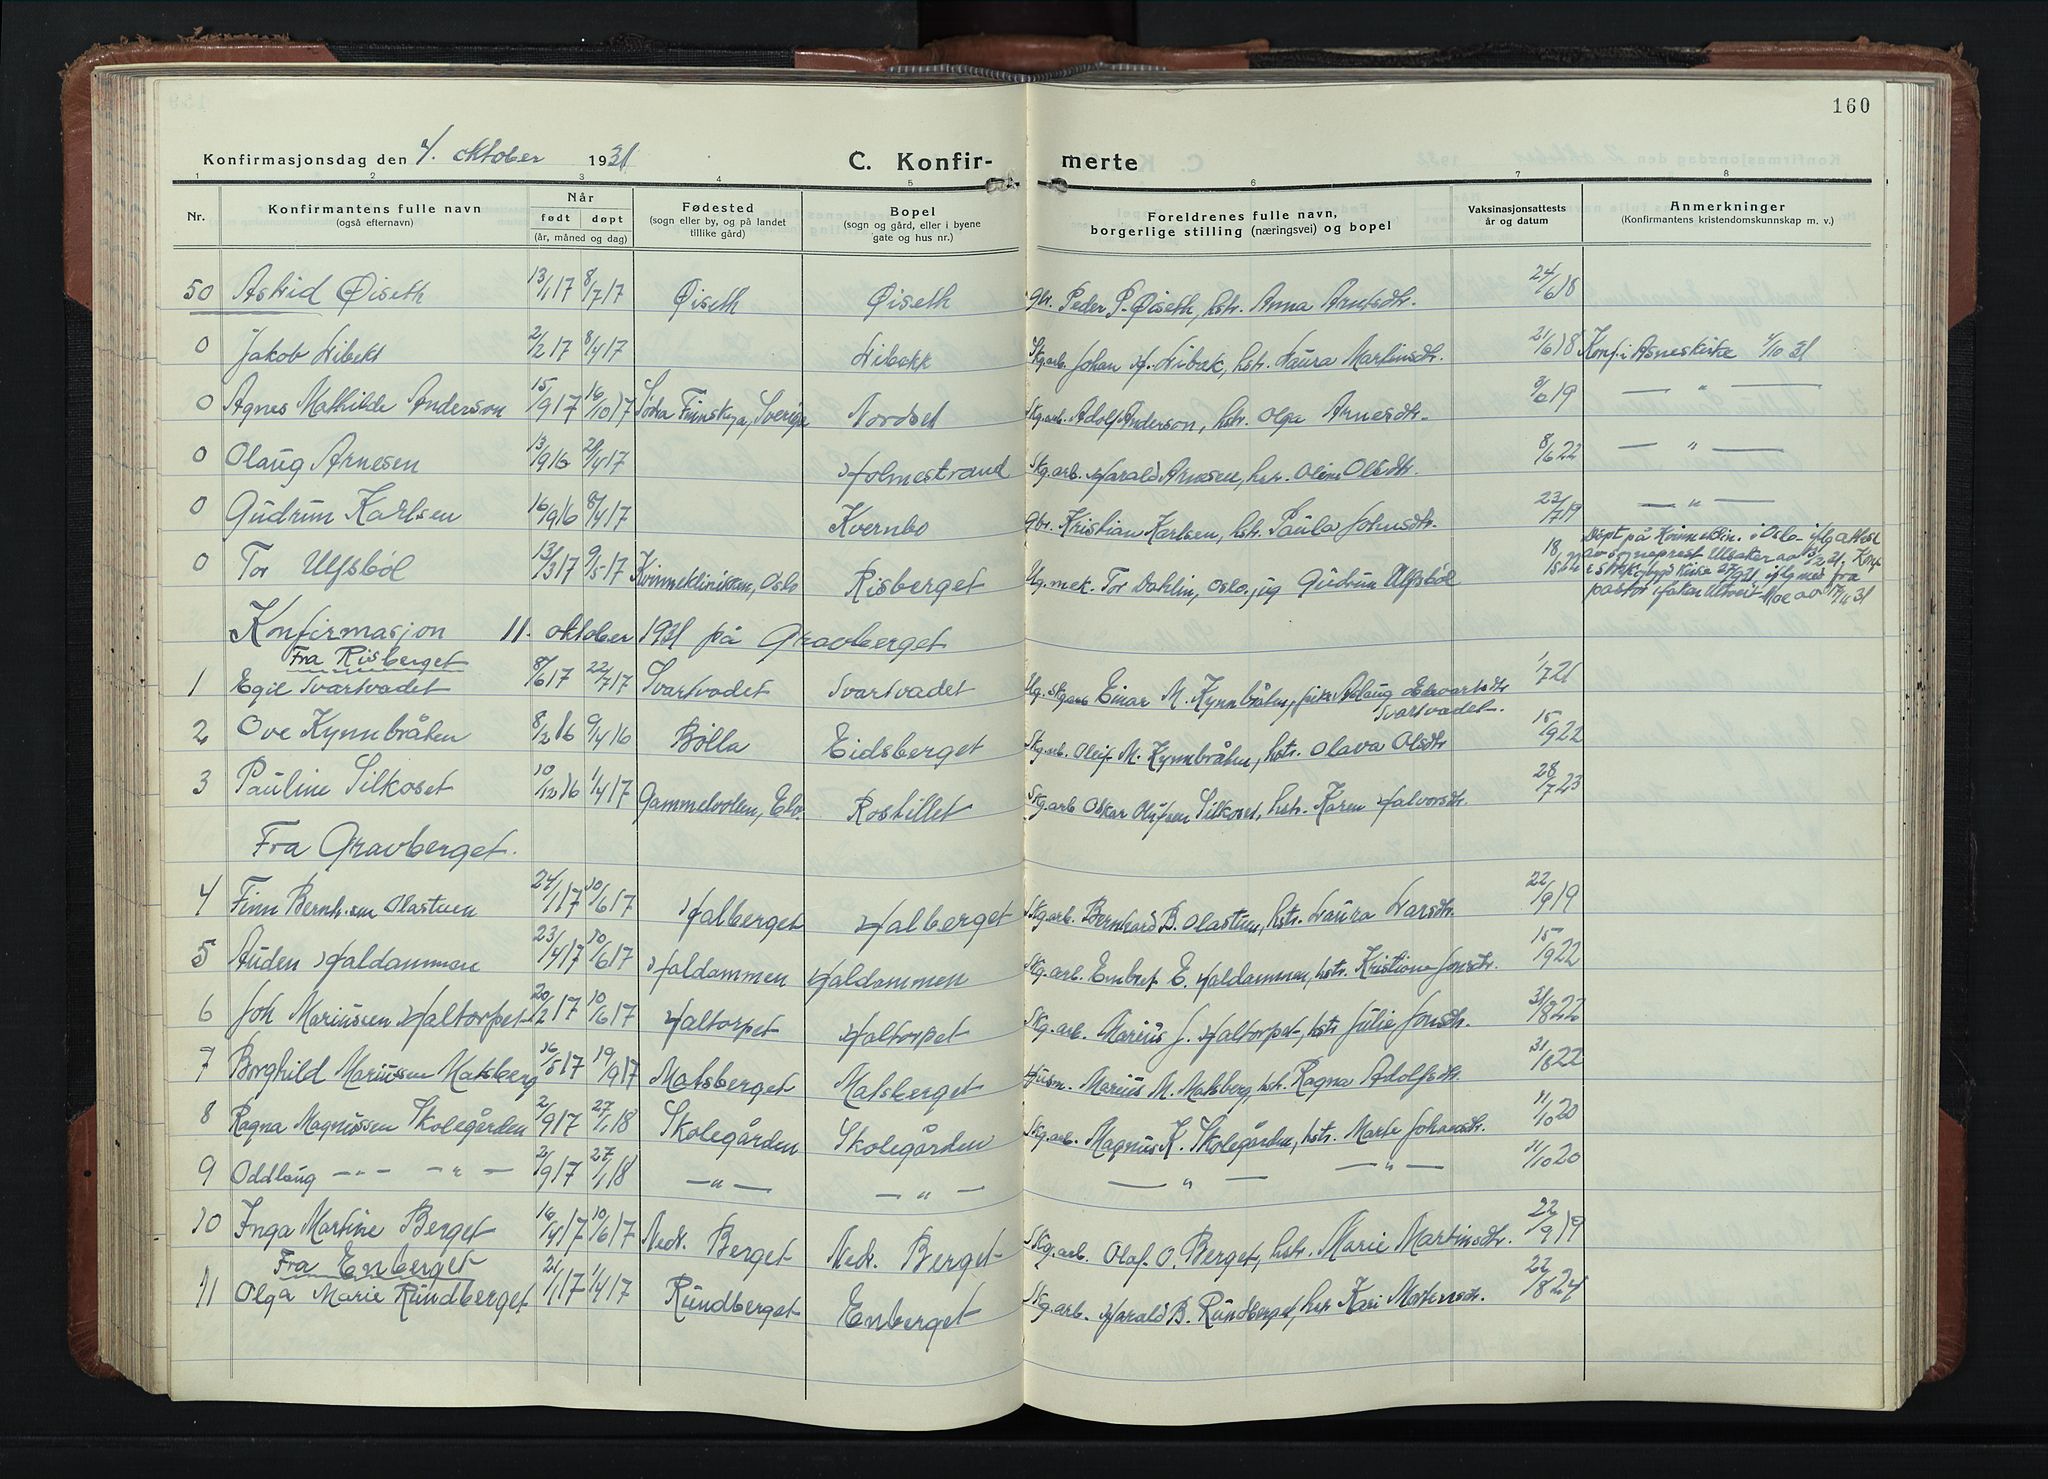 160
Konfirmasjonsdag den 4. oktober 1931 C. Konfir- merte
1 2 3 4 5 6 7 8
Nr. Konfirmantens fulle navn (også efternavn) Når født døpt (år, måned og dag) Fødested (sogn eller by, og på landet tillike gård) Bopel (sogn og gård, eller i byene gate og hus nr.) Foreldrenes fulle navn, borgerlige stilling (næringsvei) og bopel Vaksinasjonsattests år og datum Anmerkninger (Konfirmantens kristendomskunnskap m. v.)
50 Astrid Øiseth 13/1 17 8/7 17 Øiseth Øiseth gbr. Peder P. Øiseth, hstr. Anna Arntsdtr. 24/6 18
0 Jakob Libekk 2/2 17 8/4 17 Libekk Skg.arb. Johan H. Libæk, hstr. Laura Martinsdtr. 21/6 18 Konf. i Åsnes kirke 4/10 31
0 Agnes Mathilde Anderson 15/9 17 16/10 17 Södra Finnskoga, Sverige Nordset Skg.arb. Adolf Anderson, hstr. Olga Arnesdtr. 9/6 19 — " —
0 Olaug Arnesen 13/9 16 29/4 17 Holmestrand Skg.arb. Harald Arnesen, hstr. Oline Olsdtr. 8/6 22 — " —
0 Gudrun Karlsen 16/9 16 8/4 17 Kvernbo gbr. Kristian Karlsen, hstr. Paula Johnsdtr. 23/7 19 — " —
0 Tor Ulfsbøl 13/3 17 9/5 17 Kvinneklinikken, Oslo Risberget Ug. mek. Tor Dahlin, Oslo, pig Gudrun Ulfsbøl 18/ 22 Døpt på Kvinneklin. i Oslo iflg attest av sogneprest Ulsaker av 13/2 21, Konf. i kirke 27/9 31 iflg med. fra pastor Håkon Utvei Moe av 17/11 31
Konfirmasjon 11. oktober 1931 på Gravberget
Fra Risberget
1 Egil Svartvadet 8/6 17 22/7 17 Svartvadet Svartvadet Ug. skgarb Einar M. Kynnbråten, pike Aslaug Edvartsdtr Svartvadet. 1/7 21
2 Ove Kynnbråten 8/2 16 9/4 16 Bølla Eidsberget Skg.arb. Oleif M. Kynnbråten, hstr. Olava Olsdtr 15/9 22
3 Pauline Silkoset 10/12 16 1/4 17 Gammelvolen, Elv. Rostillet Skg.arb Oskar Olufsen Silkoset, hstr. Karen Halvorsdtr. 28/7 23
Fra Gravberget.
4 Finn Bernh.sen Olastuen 24/1 17 10/6 17 Halberget Halberget Skg.arb. Bernhard B. Olastuen, hstr. Laura Larsdtr. 22/9 19
5 Auden Haldammen 23/4 17 10/6 17 Haldammen Haldammen Skg.arb. Embret E. Haldammen, hstr. Kristiane Jonsdtr. 15/9 22
6 Joh Mariussen Haltorpet 20/2 17 10/6 17 Haltorpet Haltorpet Skg.arb. Marius J. Haltorpet, hstr Julie Jonsdtr. 31/8 22
7 Borghild Mariussen Matsberg 16/5 17 19/9 17 Matsberget Matsberget Husm. Marius M. Matsberg, hstr. Ragna Adolfsdtr. 31/8 22
8 Ragna Magnussen Skolegården 2/9 17 27/1 18 Skolegården Skolegården Skg.arb. Magnus K. Skolegården, hstr. Marte Johansdtr. 11/10 20
9 Oddlaug — " — — " — 2/9 17 27/1 18 — " — — " — — " — — " — 11/10 20
10 Inga Martine Berget 16/4 17 10/6 17 Nedr. Berget Nedr. Berget Skg.arb. Olaf O. Berget, hstr. Marie Martinsdtr. 22/9 19
Fra Enberget
11 Olga Marie Rundberget 21/1 17 1/4 17 Rundberget Enberget Skg.arb. Harald B. Rundberget, hstr Kari Mortensdtr. 22/8 24